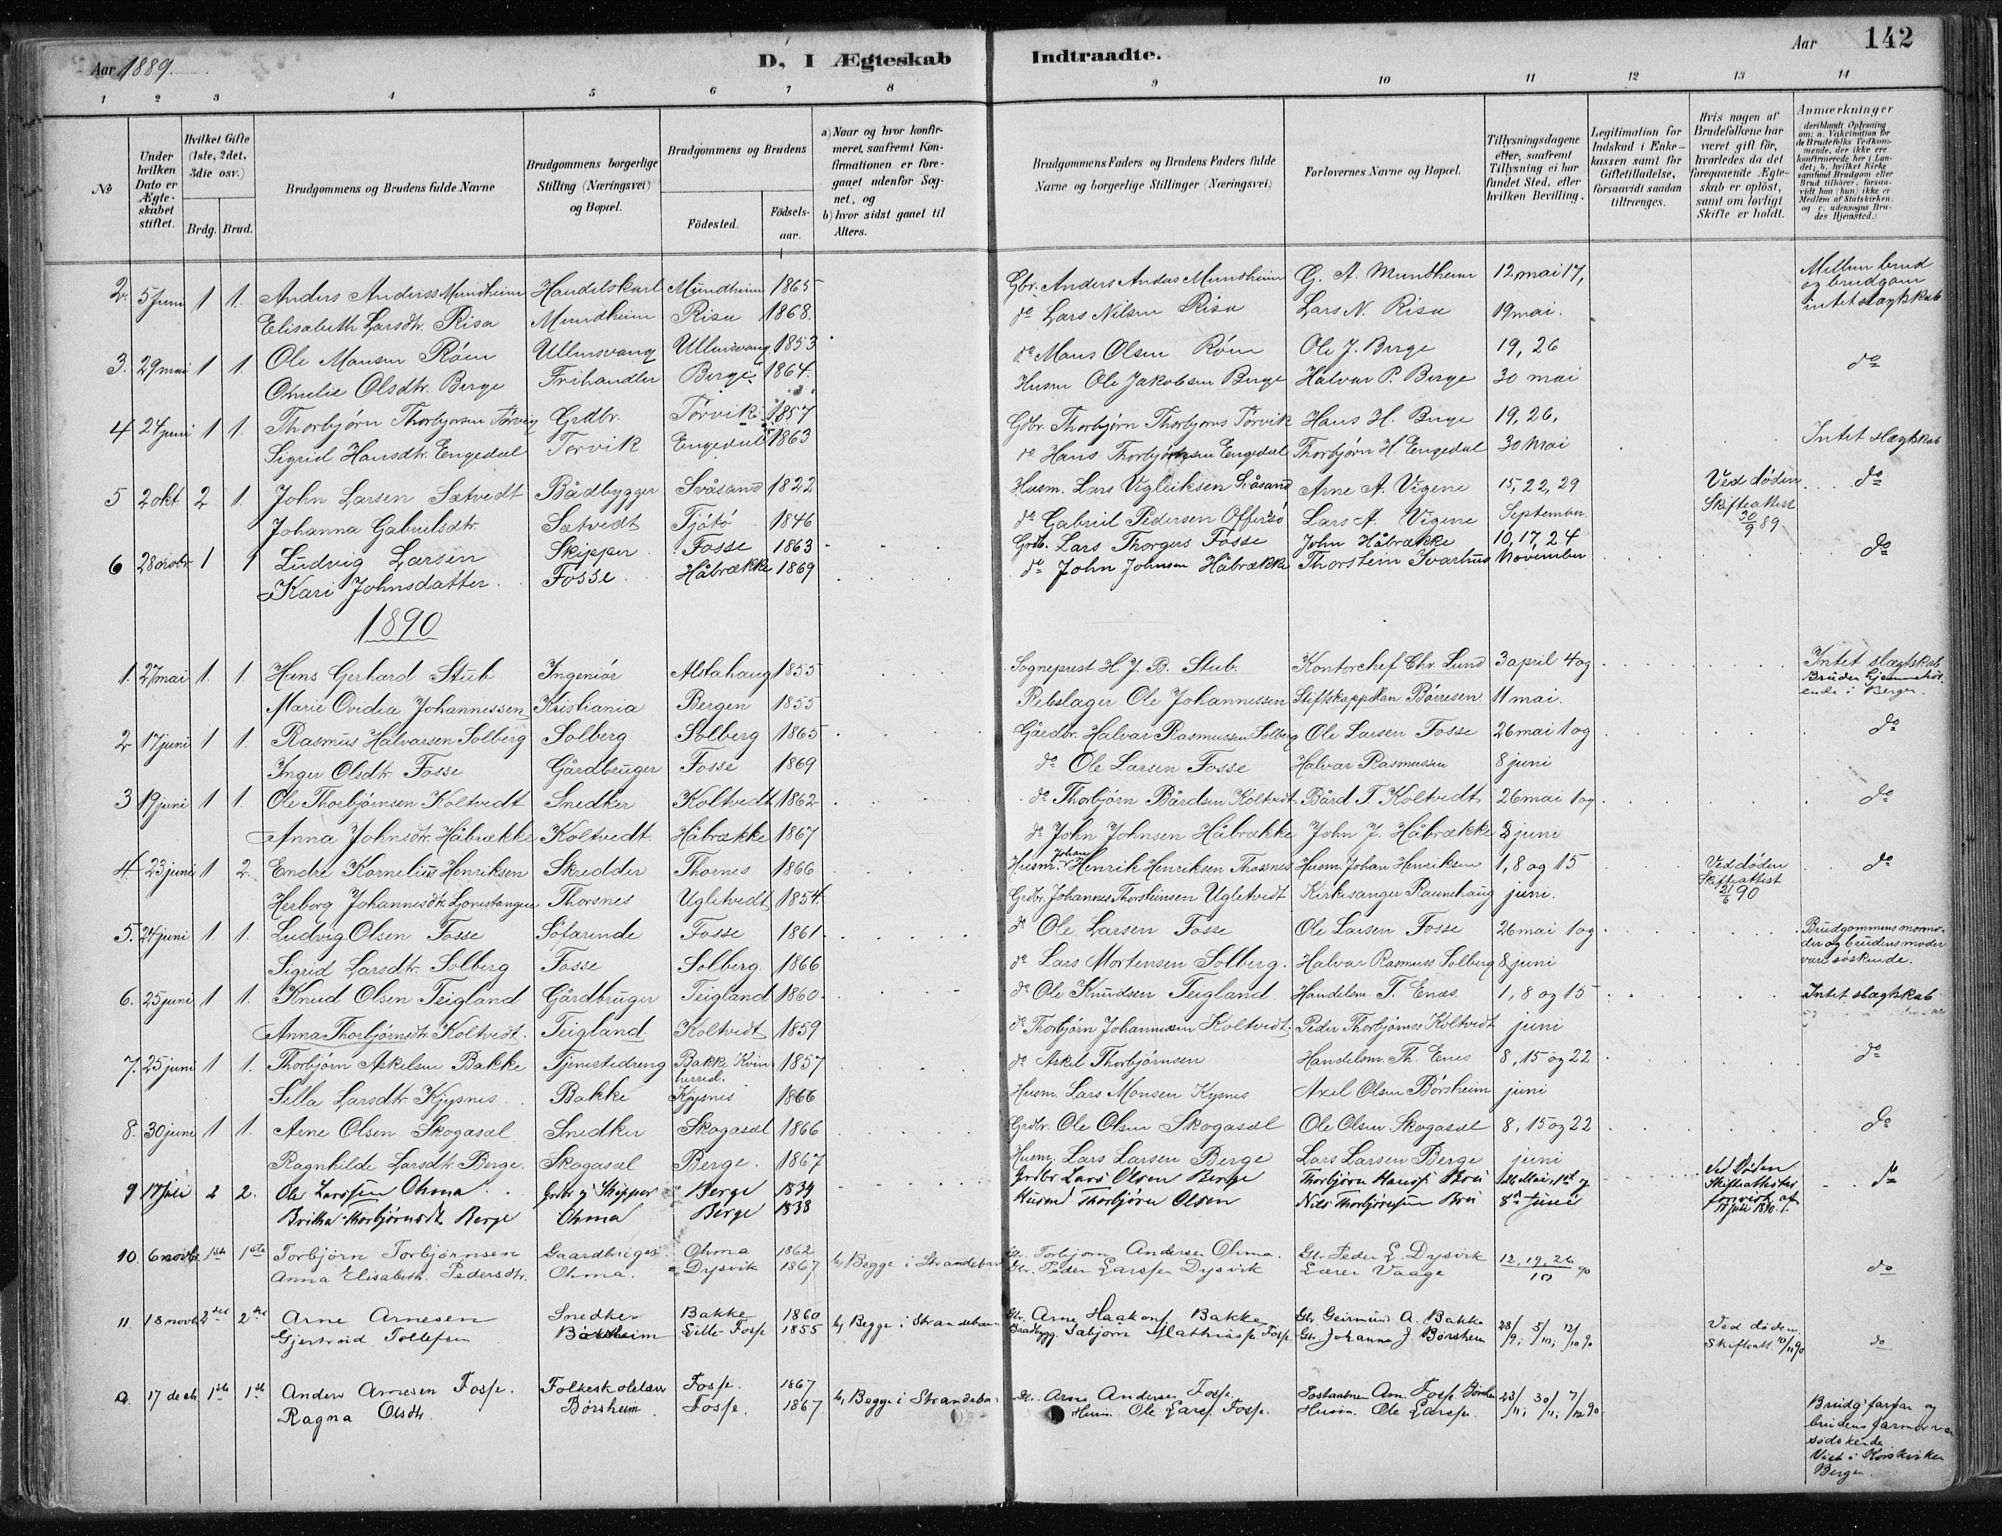 Aar 1889.
D. I Ægteskab Indtraadte.
Aar 142
1 2 3 4 5 6 7 8 9 10 11 12 13 14
No
Under hvilken Dato er Ægteskabet stiftet.
Hvilket Gifte (1ste, 2det, 3die osv.)
Brdg. Brud.
Brudgommens og Brudens fulde Navne
Brudgommens borgerlige Stilling (Næringsvei) og Bopæl.
Brudgommens og Brudens
Fødested. Fødselsaar.
a) Naar og hvor konfirmeret, saafremt Konfirmationen er foregaaet udenfor Sognet, og
b) hvor sidst gaaet til Alters.
Brudgommens Faders og Brudens Faders fulde Navne og borgerlige Stillinger (Næringsvei)
Forlovernes Navne og Bopæl.
Tillysningsdagene eller, saafremt Tillysning ei har fundet Sted, efter hvilken Bevilling.
Legitimation for Indskud i Enkekassen samt for Giftetilladelse, forsaavidt saadan tiltrænges.
Hvis nogen af Brudefolkene har været gift før, hvorledes da det foregaaende Ægteskab er opløst, samt om lovligt Skifte er holdt.
Anmærkninger (deriblandt Oplysning om: a. Vakcination for de Brudefolks Vedkommende, der ikke ere konfirmerede her i Landet; b. hvilket Kirkesamfund Brudgom eller Brud tilhører, forsaavidt han (hun) ikke er Medlem af Statskirken, og c. udensogns Brudes Hjemsted.)
2. 5 juni 1 1. Anders Anderss. Mundheim Handelskarl Mundheim 1865 Gbr. Anders Anders Mundheim G. A. Mundheim 12 mai 17, Mellem brud og brudgom intet slægtskab
Elisabeth Larsdtr. Risa Mundheim Risa 1868. do Lars Nilsen Risa Lars N. Risa 19 mai.
3. 29 mai 1 1. Ole Mansen Róen Ullensvang Ullensvang 1853 do Mans Olsen Róen Ole J. Berge 19, 26 do
Olsdtr. Berge Frihandler Berge 1864. Husm Ole Jakobsen Berge Halvar P. Berge 30 mai
4 24 juni 1 1. Thorbjørn Thorbjornsen Tørvig Grdbr. Tørvik 1857 Gdbr. Thorbjørn Thorbjorns Tørvik Hans H. Berge 19, 26, Intet slægtskab
Sigrid Hansdtr. Engedal Torvik Engedal 1863 do Hans Thorbjørnsen Engedal Thorbjørn H. Engedal 30 Mai
5 2 okt 2 1. John Larsen Sætvedt Bådbygger Svåsand 1822 Husm. Lars Vigleiksen Svåsand Arne A. Vigene 15, 22, 29 Ved døden Skifteattest 30/9 89 do
Johanna Gabrielsdtr. Sætvedt Tjøtø 1846 do Gabriel Pedersen Offersø Lars A. Vigene September
6 28 1 1 Ludvig Larsen Skipper Fosse 1863 Grdb. Lars Thorgers Fosse John Håbrække 10, 17, 24 do
Kari Johnsdatter Fosse. Håbrække 1869 do John Johnsen Håbrække Thorstein Ivarhus November
1890
1. 27 mai 1. 1. Hans Gerhard Stub Ingeniør Alstahaug 1855 Sogneprest H. J. B. Stub. Kontorchef Chr. Lund 3 april 4 og Intet slægtskab Bruden hjemmehørende i Bergen.
Marie Ovidia Johannessen Kristiania Bergen 1855 Rebslager Ole Johannessen Stiftskappellan Børresen 11 mai.
2 17 juni 1 1. Rasmus Halvarsen Solberg Solberg Solberg 1865 Gårdbr. Halvar Rasmussen Solberg Ole Larsen Fosse 26 mai 1 og do
Inger Olsdtr. Fosse Gårdbruger Fosse 1869 do Ole Larsen Fosse Halvar Rasmussen 8 juni
3 19 juni 1 1. Ole Thorbjørnsen Koltvedt Snedker Koltvedt 1862 do Thorbjørn Bårdsen Koltvedt Bård T. Koltvedt 26 mai 1 og do
Anna Johnsdtr. Håbrække Koltvedt. Håbrække 1867 do John Johnsen Håbrække John J. Håbrække 8 juni
4. 23 juni 1 2. Endre Kornelius Henriksen Skredder Thornes 1866 Husm. Johan Henrik Henriksen Thosnes Husm. Johan Henriksen 1, 8 og 15 Ved døden Skifteattest 21/6 90 do
Herborg Johannesdtr. Ljonestangen Thorsnes Ugletvedt 1854. Grdbr. Johannes Thorsteinsen Ugletvedt Kirkesanger Raunehaug juni.
5. 24 juni 1. 1. Ludvig Olsen Fosse Søfarende Fosse 1861 do Ole Larsen Fosse Ole Larsen Fosse 26 mai 1 og Brudgommens mormoder og brudens moder vare søskende.
Sigrid Larsdtr. Solberg Fosse Solberg 1866 do Lars Mortensen Solberg. Halvar Rasmuss Solberg 8 juni
6. 25 juni 1 1. Knud Olsen Teigland Gårdbruger Teigland 1860. do Ole Knudsen Teigland Handelsm. T. Enæs. 1, 8 og 15 Intet slægtskab
Anna Thorbjørnsdtr. Koltvedt. Teigland Koltvedt 1859 do Thorbjørn Johannessen Koltvedt. Peder Thorbjørnss Koltvedt juni
7. 25 juni 1 1. Thorbjørn Askelsen Bakke Tjenestedreng Bakke Kvinherred. 1857 do Askel Thorbjørnsen Handelsm. Th. Enes 8, 15 og 22 do
Silla Larsdtr. Kjysnes Bakke Kjysnes 1866 Husm. Lars Monsen Kysnes Axel Olsen Børsheim juni
8. 30 juni 1 1. Arne Olsen Skogasæl Snedker Skogasæl 1866 Grdbr. Ole Olsen Skogasæl Ole Olsen Skogasæl 8, 15 og 22 do
Ragnhilde Larsdtr. Berge. Skogasæl Berge. 1867 Husm. Lars Larsen Berge Lars Larsen Berge juni
9 17 Juli 2 2. Ole Larssen Ohma Grdbr og Skipper Berge 1834 Grdbr Lars Olsen Berge Thorbjørn Hanss. Brei 26 Mai, 1st og Ved Døden Skifteattester do
Britha Thorbjørnsdtr Berge Ohma Berge 1838 Husmd Thorbjørn Olsen Nils Thorbjørnsen Brei 8de Juni
10. 6 novbr. 1ste 1ste Torbjørn Torbjørnsen Gaardbruger. Ohma 1862 b, Begge i Strandebarm Gbr. Torbjørn Andersen Ohma. Gbr. Peder L. Dysvik 12, 19, 26/10 90 do
Anna Elisabeth Pedersdtr. Ohma. Dysvik 1867 Gbr. Peder Larssen Dysvik Lærer Vaage
11 13 novb. 2det 2det Arne Arnesen Snedker Bakke 1860 b, Begge i Strandebarm Gbr. Arne Haakons. Bakke Gbr. Geirmund A. Bakke 28/9, 5/10, 12/10 90 Ved døden Skifteatt. do
Gjertrud Tollefsen Børsheim Lille-Fosse 1855 Baadbygg. Mathiass. Fosse Gbr. Johannes J. Børsheim
17 decb. 1ste 1ste Anders Arnesen Fosse. Folkeskolelærer Fosse. 1867 b, Begge i Strandebarm Arne Andersen Fosse. Fosse 23/11, 30/11, 7/12 90 Brudg' farfar og brudens farmor var sødskende. Viet i Korskirken Bergen.
Ragna Olsdtr. Børsheim. Fosse. 1867 Husm. Ole Larss. Fosse. Husm. Ole Larssen.